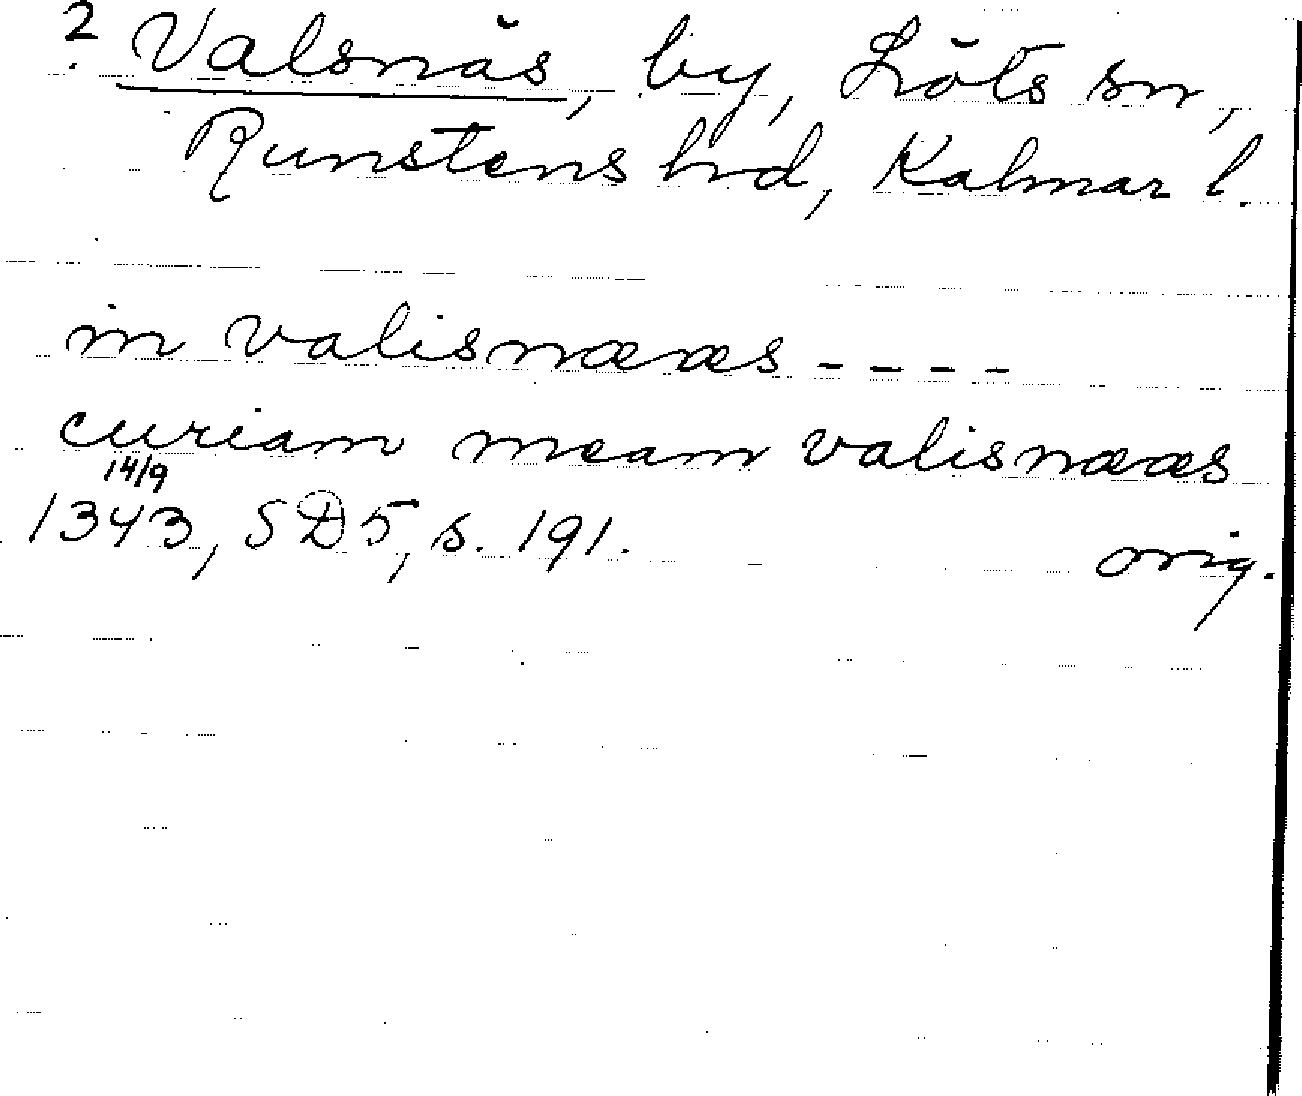 ? Valsnäs, by, Löts sn,
Runstens hrd, Kalmar l.
in valisnæræs ----
curiam meam valisnæræs
14/9
1343, SD 5, s. 191. orig.